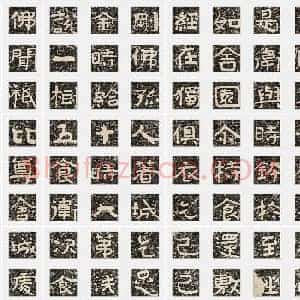 佛說金剛經如是
聞一時佛在舍衛
祇樹給孤獨園與
比五十人俱尒時
食時著衣持
衛大城乞食於
城次第乞已還至
處食足已敷坐